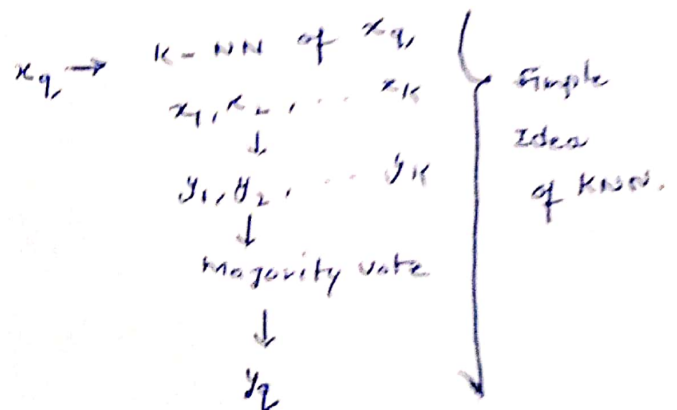 x_q → K-NN of x_q
x₁, x₂, ... x_K
↓
y₁, y₂, ... y_K
↓
Majority vote
↓
y_q
Simple
Idea
of KNN.